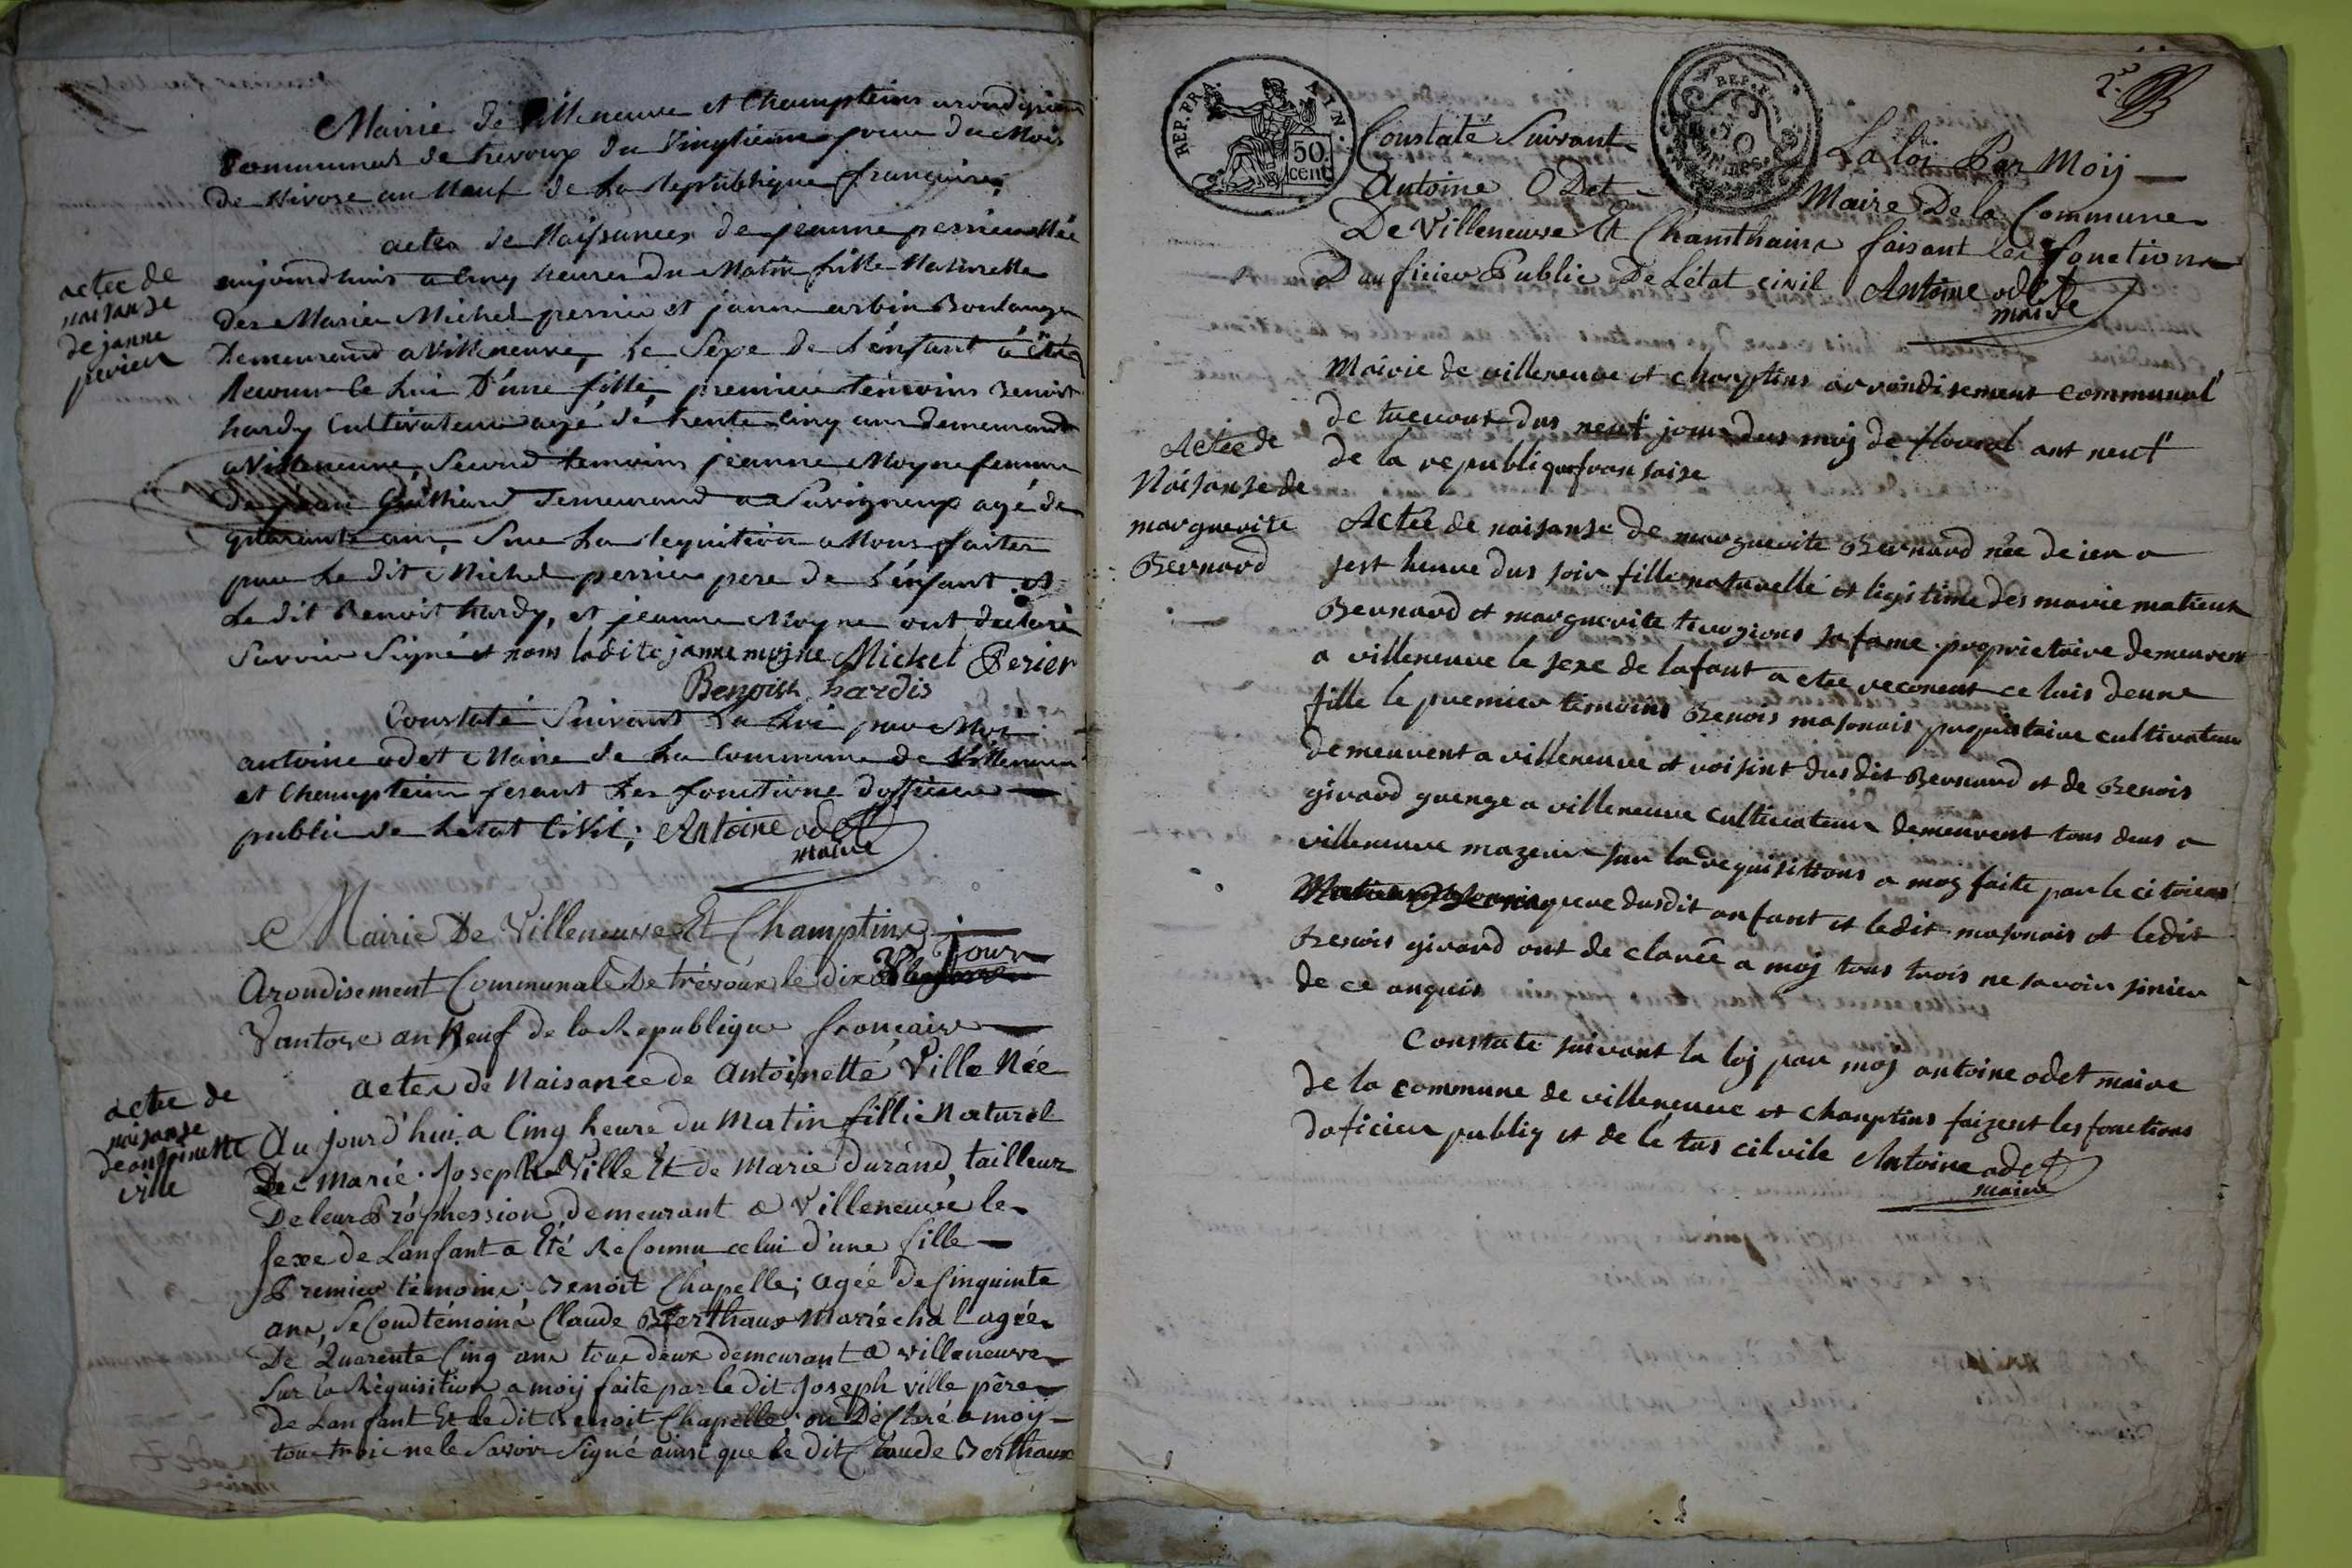 Mairie de Villeneuve et Champteins arondisem
Communal de trevoux du Vingtieme jour du Mois
de Nivose an Neuf de La republique francaise,
actes de Naissances de jeanne perrier Née
acte de
naisanse
de janne
perier
aujourdhuis a Cinq heures du Matin fille Naturelle
des Maries Michel perrier et janne arbin Boulanger
demeurand a Villeneuve, Le Sexe de L'énfant à été
Reconu Ce lui D'une fille, premier temoins Benoit
hardy Cultivateur agé de trente Cinq ans demeurand
a Villeneuve, Second temoins jeanne Moyne femme
de jean demeurand a Savigneux agé de
quarante ans, Sur La requisition a Nous faites
par Le dit Michel perrier pere de L'énfant et
Le dit Benoit hardy, et jeanne Moyne ont declaré
Savoir Signé et nons ladite janne mojne Michel Perier
Benoist hardis
Constaté Suivant La Loi par Moi
antoine odet Maire de La Commune de Villeneuve
et Champteins fesant Les fonctions d'officier
public de Letat Civil; Antoine odet
maire
Mairie De Villeneuve Et Champtins
Jour
Arondisement Communale De trévoux le dix
Vantose an Neuf de la Republique française
actes de Naisance de Antoinette Ville Née
actee de
naisanse
de antoinette
ville
Au jourd'hui a Cinq heure du Matin fillie Naturel
Des Marié Joseph Ville Et de Marie durand tailleur
De leur Prophession demeurant a Villeneuve le
sexe de Lanfant a été Reconnu celui d'une fille
Premier témoins Benoit Chapelle; agée de Cinquinte
ans, Second témoins Claude Berthaux Maréchal agée
De Quarente Cinq ans tous deux demeurant a villeneuve
Sur la Réquisition a moij faite par le dit Joseph ville père
de Lanfant Et le dit Benoit Chapelle on Déclaré a moij
tous trois ne le Savoir Signé ainsi que le dit Claude Berthaux
2e
REP. FRA. AIN.
50
cent.
Constaté Suivant La loi Par Moij
Antoine ODet Maire De la Commune
De Villeneuve Et Chamthains faisant les fonctions
D'auficier Public De L'état civil Antoine odet
maire
Mairie de villeneuve et chanptins arrondisement communal
de trevoux dus neuf jour dus mois de floreal ant neuf
de la republique fransaise
Actee de
Naisanse de
marguerite
Bernard
Actée de naisanse de marguerite Bernard née de ier a
sest heure dus soir fille naturelle et ligitime des marie matieux
Bernard et marguerite sa fame proprietaire demeurent
a villeneuve le sexe de lafant a etee reconeut ce luis deune
fille le premier temoins Benois masonais propriotaire cultivateur
demeurent a villeneuve et voisint dus dit Bernard et de Benois
girard grenge a villeneuve cultivateur demeurent tous deus a
villeneuve mazeur sur la requisitions a moy faite par le citoiens
pere dusdit anfant et ledit masonais et ledit
Benois girard ont de claree a moj tous trois ne savoir sinier
de ce anquis
Constate suivant la loj par moj antoine odet maire
de la commune de villeneuve et chanptins faizent les fonctions
dofisier publiq et de le tas cilvile Antoine odet
maire